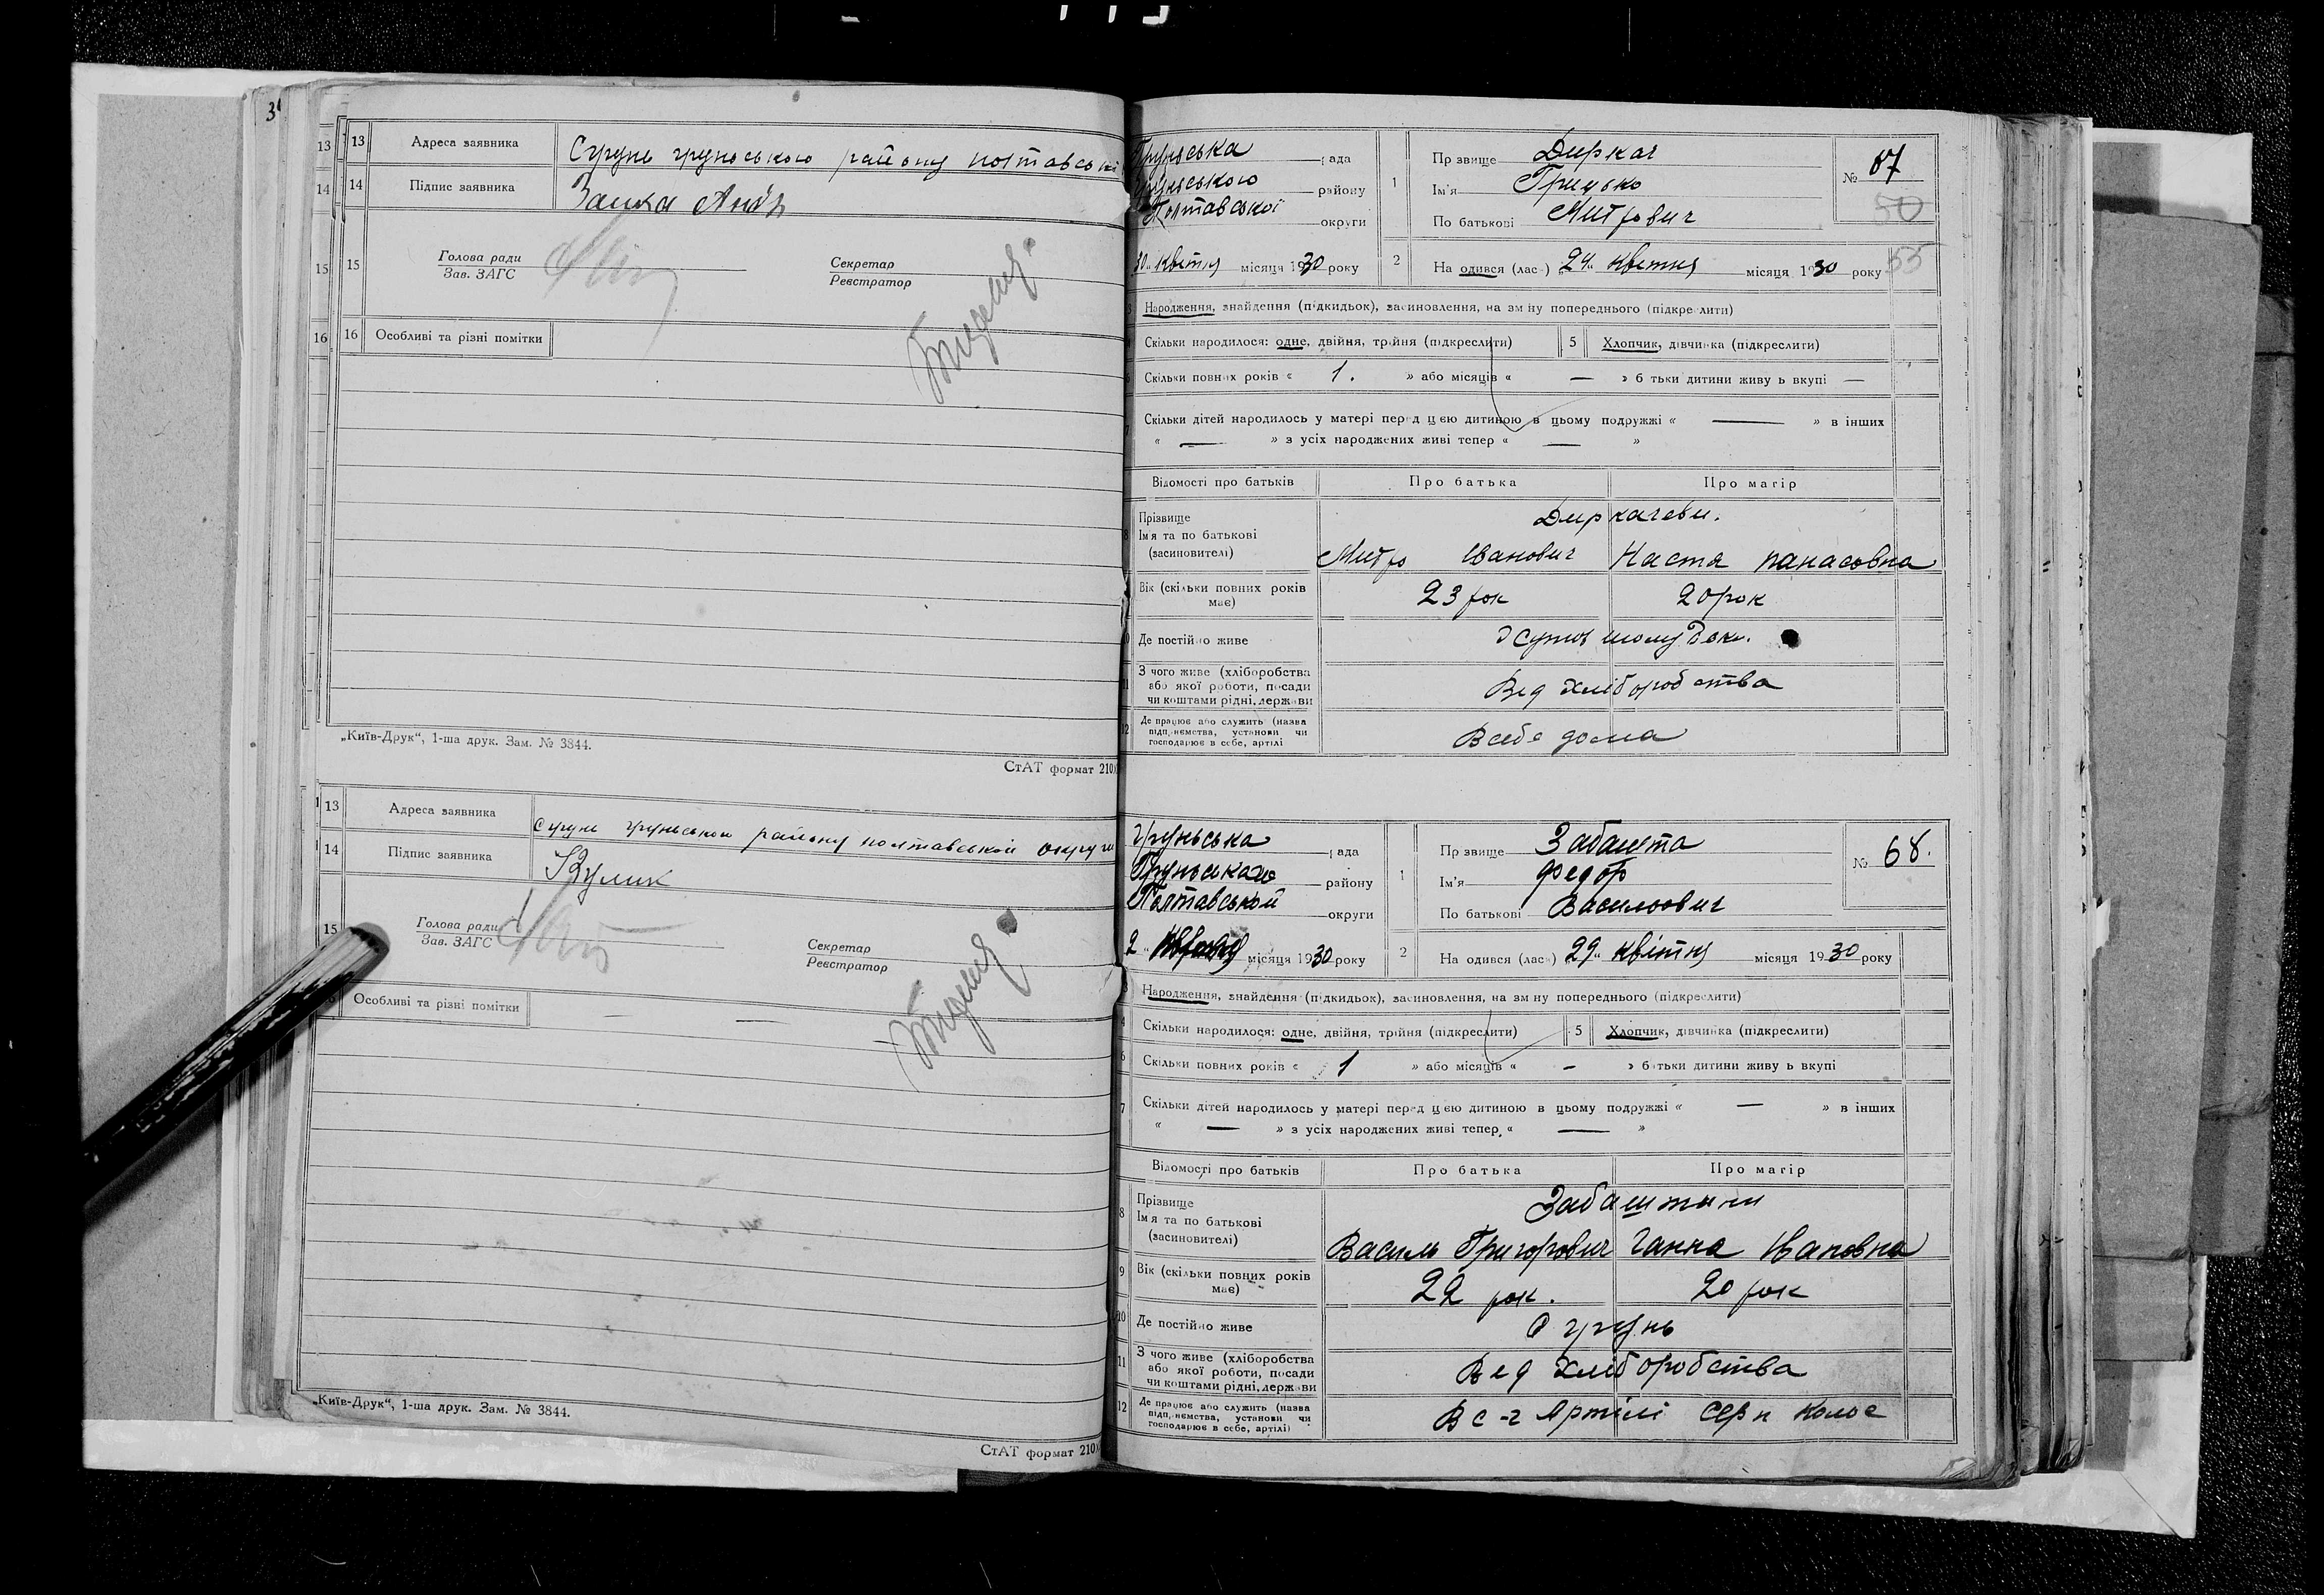 3
13 Адреса заявника С грунь груньського району полтавські
14 Підпис заявника Заика
15 Голова ради Секретар
Зав. ЗАГС Реєстратор
16 Особливі та різні помітки
„Київ-Друк“, 1-ша друк. Зам. № 3844.
СтАТ формат 210
13 Адреса заявника С грунь груньською району полтавськой округи
14 Підпис заявника Кулик
15 Голова ради Секретар
Зав. ЗАГС Реєстратор
Особливі та різні помітки — —
„Київ-Друк“, 1-ша друк. Зам. № 3844.
СтАТ формат 210
Груньська рада
Груньського району
Полтавської округи
30 квітня місяця 1930 року
1 Прізвище Диркач
Ім'я Грицько
По батькові Митрович
№ 67
50
55
2 Народився (лась) 24 квітня місяця 1930 року
Народження, знайдення (підкидьок), засиновлення, на зміну попереднього (підкреслити)
Скільки народилося: одне, двійня, трійня (підкреслити) 5 Хлопчик, дівчинка (підкреслити)
Скільки повних років « 1. » або місяців « — » батьки дитини живуть вкупі —
Скільки дітей народилось у матері перед цією дитиною в цьому подружжі « — » в інших
« — » з усіх народжених живі тепер « — »
Відомості про батьків Про батька Про матір
Прізвище Диркачеви.
Ім'я та по батькові
(засновителі) Митро Іванович Настя Панасовна
Вік (скільки повних років має) 23 рок 20 рок
Де постійно живе
З чого живе (хліборобства
або якої роботи, посади
чи коштами рідні, держави Вед хліборобства
12 Де працює або служить (назва
підприємства, установи чи
господарює в себе, артілі В себе дома
груньська рада
Груньского району
Полтавськой округи
2 місяця 1930 року
1 Прізвище Забашта
Ім'я Федор
По батькові Васильович
№ 68.
2 Народився (лась) 29 квітня місяця 1930 року
Народження, знайдення (підкидьок), засиновлення, на зміну попереднього (підкреслити)
4 Скільки народилося: одне, двійня, трійня (підкреслити) 5 Хлопчик, дівчинка (підкреслити)
6 Скільки повних років « 1 » або місяців « — » батьки дитини живуть вкупі
7 Скільки дітей народилось у матері перед цією дитиною в цьому подружжі « — » в інших
« — » з усіх народжених живі тепер « — »
Відомості про батьків Про батька Про матір
8 Прізвище
Ім'я та по батькові
(засиновителі) Василь Григорович Ганна Івановна
9 Вік (скільки повних років має) 22 рок. 20 рок
10 Де постійно живе С грунь
11 З чого живе (хліборобства
або якої роботи, посади
чи коштами рідні, держави Вед хліборобства
12 Де працює або служить (назва
підприємства, установи чи
господарює в себе, артілі) В с-г Артілі Серп Колос